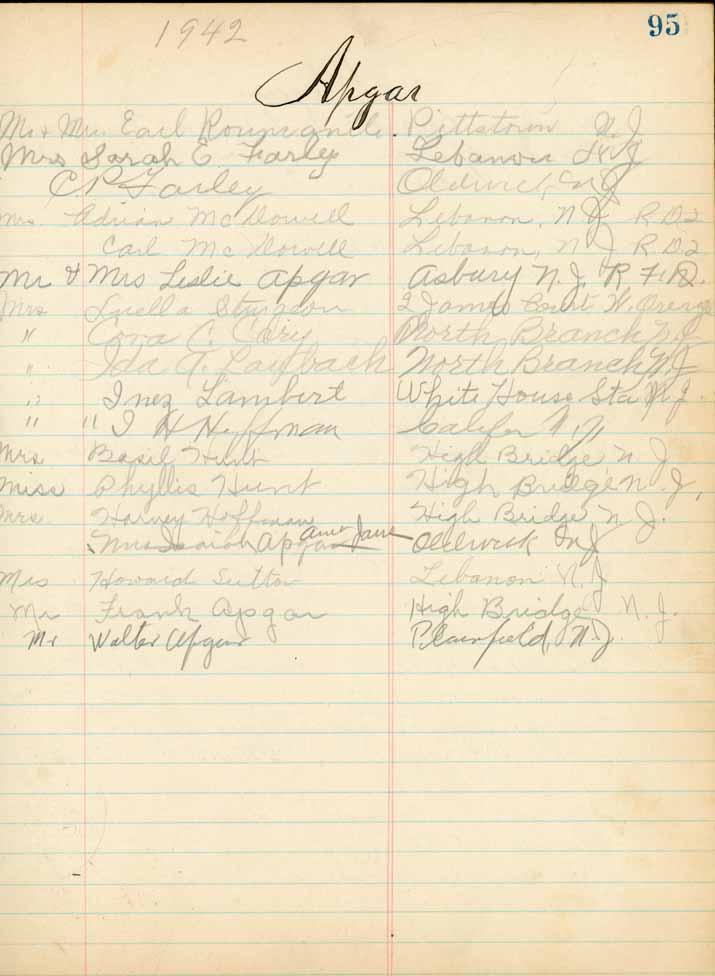 95
1942
Apgar
Mr & Mrs. Earl Pittstown N.J
Mrs Sarah E. Farley Lebanon N.J
C.P. Farley Oldwick N.J
Mrs Adrian McDowell Lebanon, N.J. R.D.2
Carl McDowell Lebanon, N.J R.D.2
Mr & Mrs Leslie Apgar Asbury N.J. R.F.D.
Mrs Luella Sturgeon 2 James Court W. Orange
" Cora C. North Branch N.J
" Ida A. Laubach North Branch N.J
" Inez Lambert White House Sta N.J.
" " I H Hoffman Califon N.J
Mrs Basil Hunt High Bridge N.J
Miss Phyllis Hunt High Bridge N.J,
Mrs. Harvey Hoffman High Bridge N.J.
Mrs Isaiah Apgar Jane Oldwick N.J
Mrs Howard Sutton Lebanon N.J
Mr Frank Apgar High Bridge N.J.
Mr Walter Apgar Plainfield, N.J.